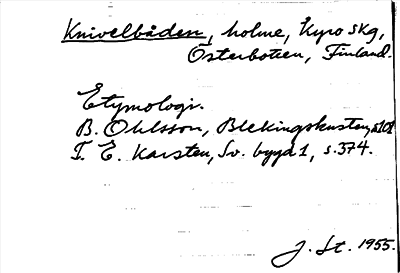 Knivelbåden, holme, Kyro skg,
Österbotten, Finland.
Etymologi.
B. Ohlsson, Blekingskusten, s. 101
T. E. Karsten, Sv. bygd 1, s. 374.
J. St. 1955.